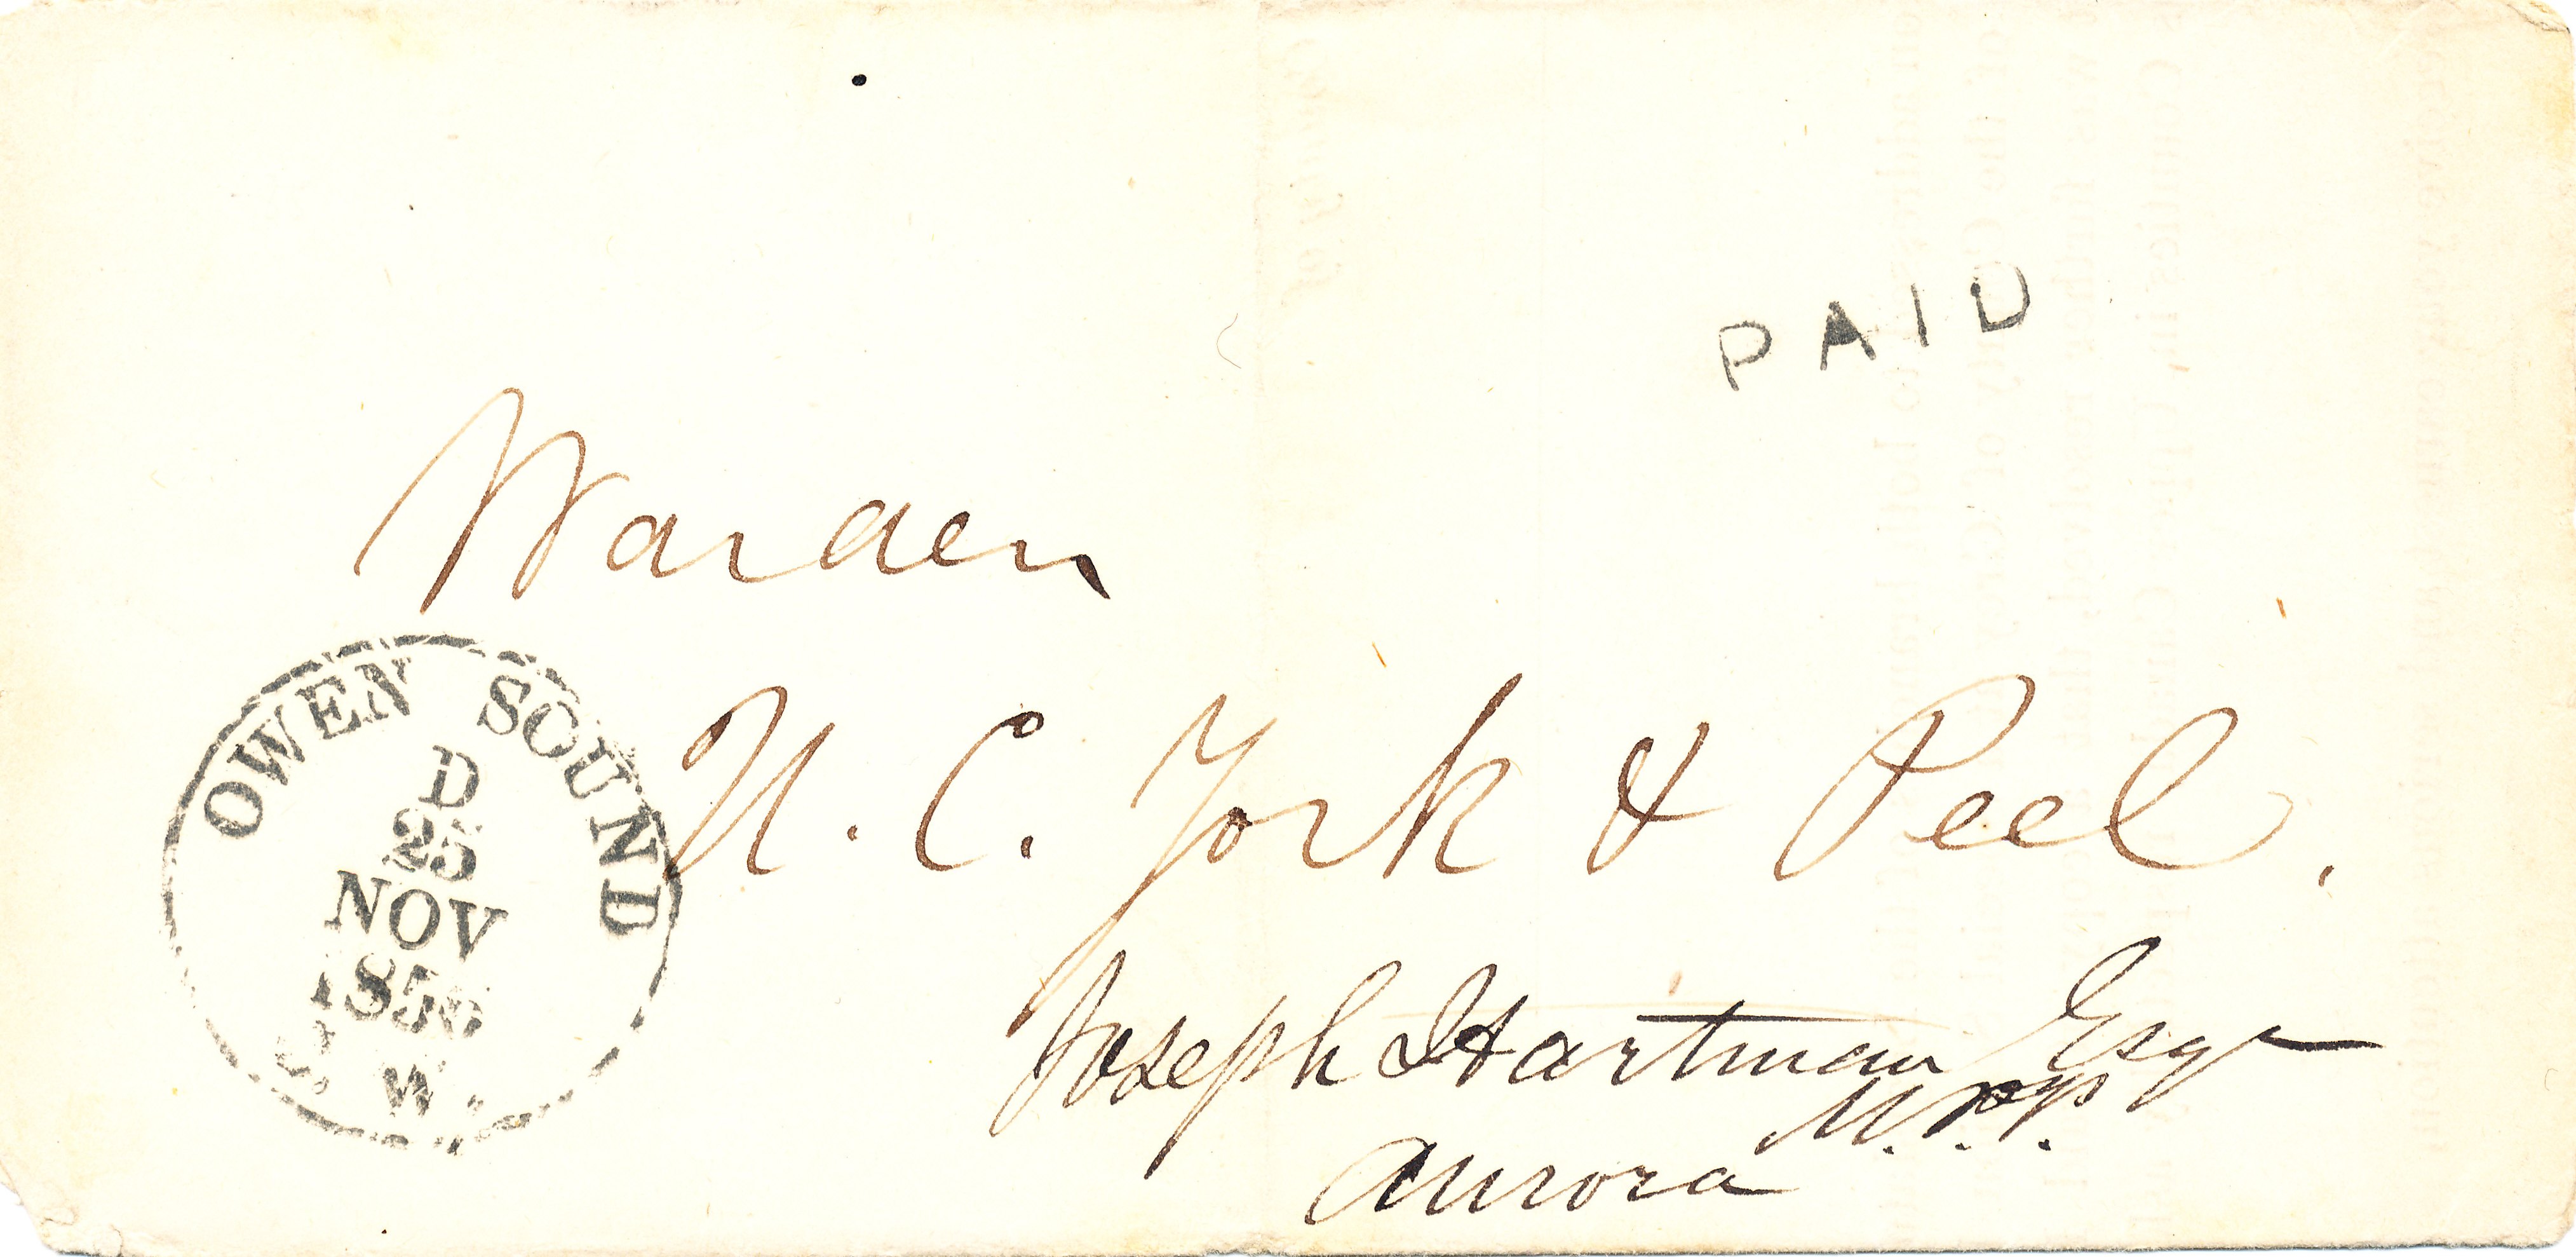 PAID
Warden
U. C. York & Peel.
OWEN SOUND
D
25
NOV
C. W.
Joseph Hartman Esqr
M.P.P.
Aurora